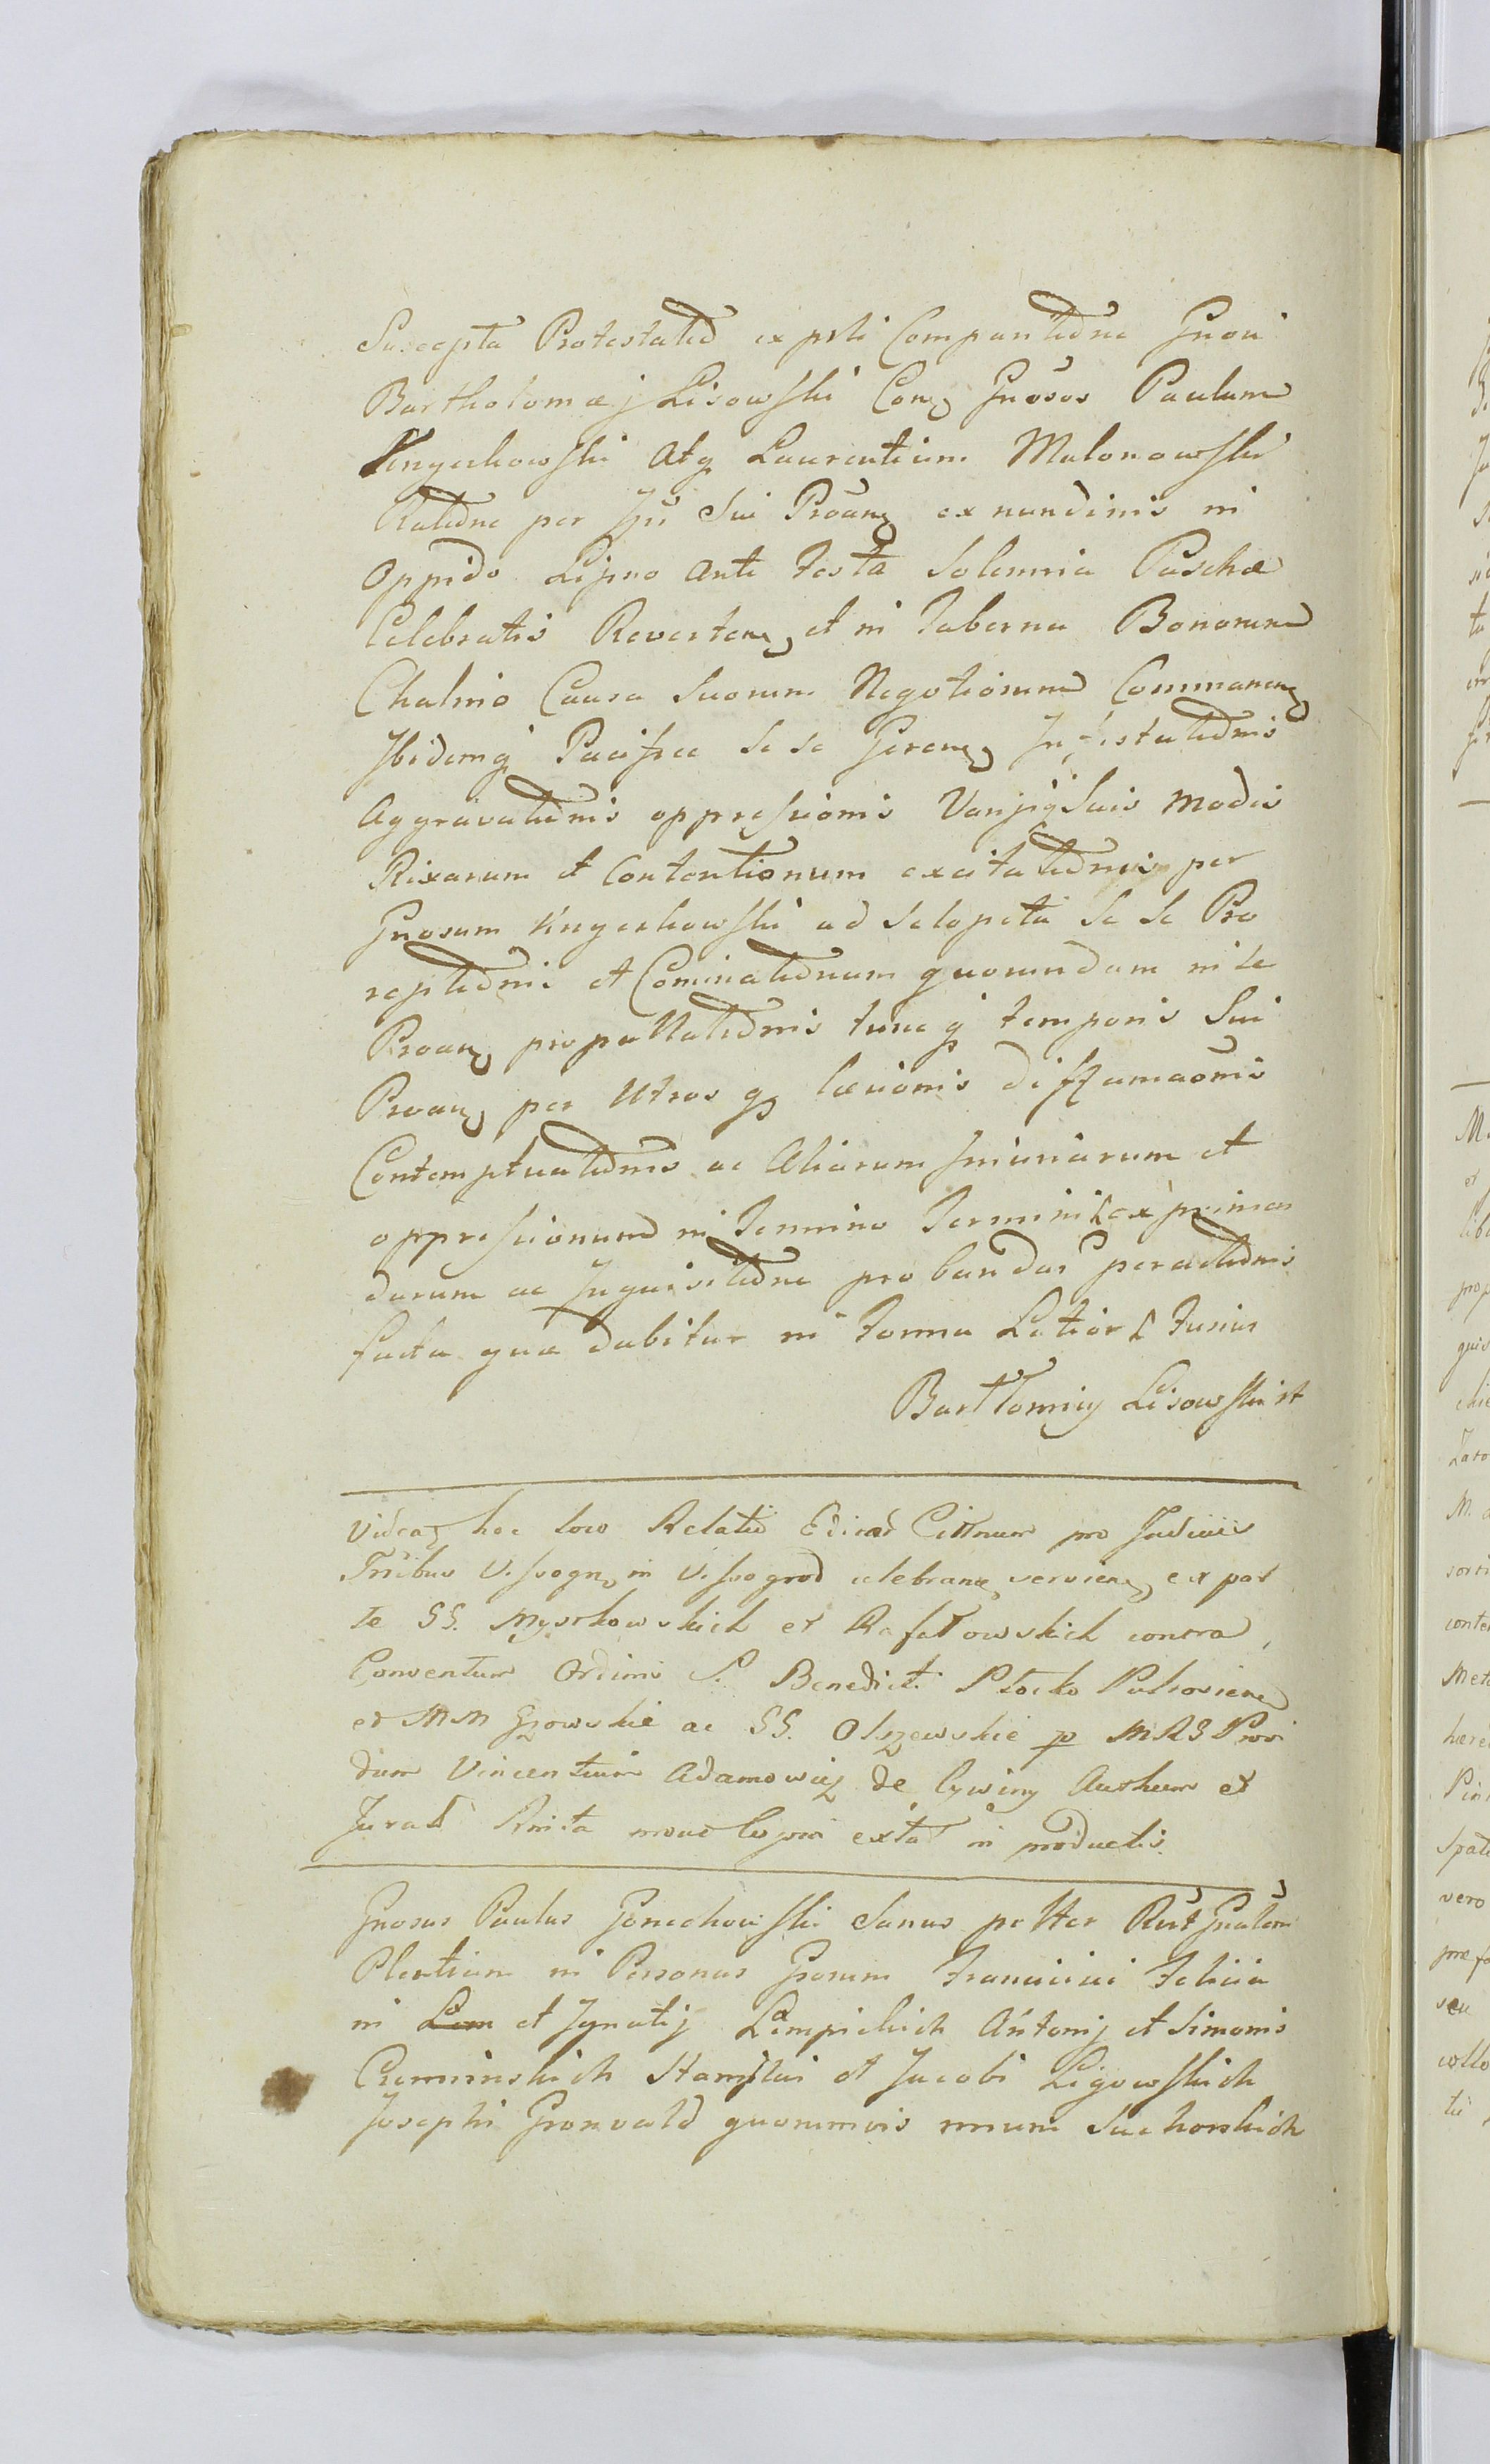 Suscepta Protestatio ex prti Comparitione Gnosi
Bartholomæj Lisowski Con Gnosos Paulum
Knyechowski Atq Laurentium Malonowski
Ratione per Sui Proan ex nundinis in
Oppido Lipno Ante Festa Solemnia Paschæ
Celebratis Reverten et in Taberna Bonorum
Chalino Causa Suorum Negotiorum Commanen
Ibidemq Pacifice Se se Geren Infestationis
Aggravationis oppressionis Varijsq Suis Modis
Rixarum et Contentionum excitationis per
Gnosum Knyechowski ad Sclopeta Se Se Pro
reptionis et Cominationum quorundam in Se
Proan propallationis tunc q temporis Sui
Proan per Utros q læsionis diffamaonis
Contemptuationis ac Aliarum Iniuriarum et
oppressionum in Termino Termini exprimen
darum ac Inquisitione probandar peractionis
facta quæ dabitur in Forma Latior Fusius
Barttomiy Lisowski
Videat hoc loco Relatio Edicat Cittnum pro Judiciis
Tribus Vissogn in Vissogrod celebran servien ex par
te GG. Myszkowskich et Rafałowskich contra
Conventum Ordinis S. Benedicti Płocko Pultovien
et MM Gzowskie ac GG. Olszewskie p MRS Provi
dum Vincentium Adamowicz de Cywiny Authum et
Jurat extat in productis.
Gnosus Paulus Gorzechowski Sanus
Plentiam in Personas Gnorum Francisci Felicia
ni Lem et Ignatij Lempickich Antonij et Simonis
Czeminskich Stanislai et Jacobi Ligowskich
Josephi Gronvald quorumvis unum Suchorskich